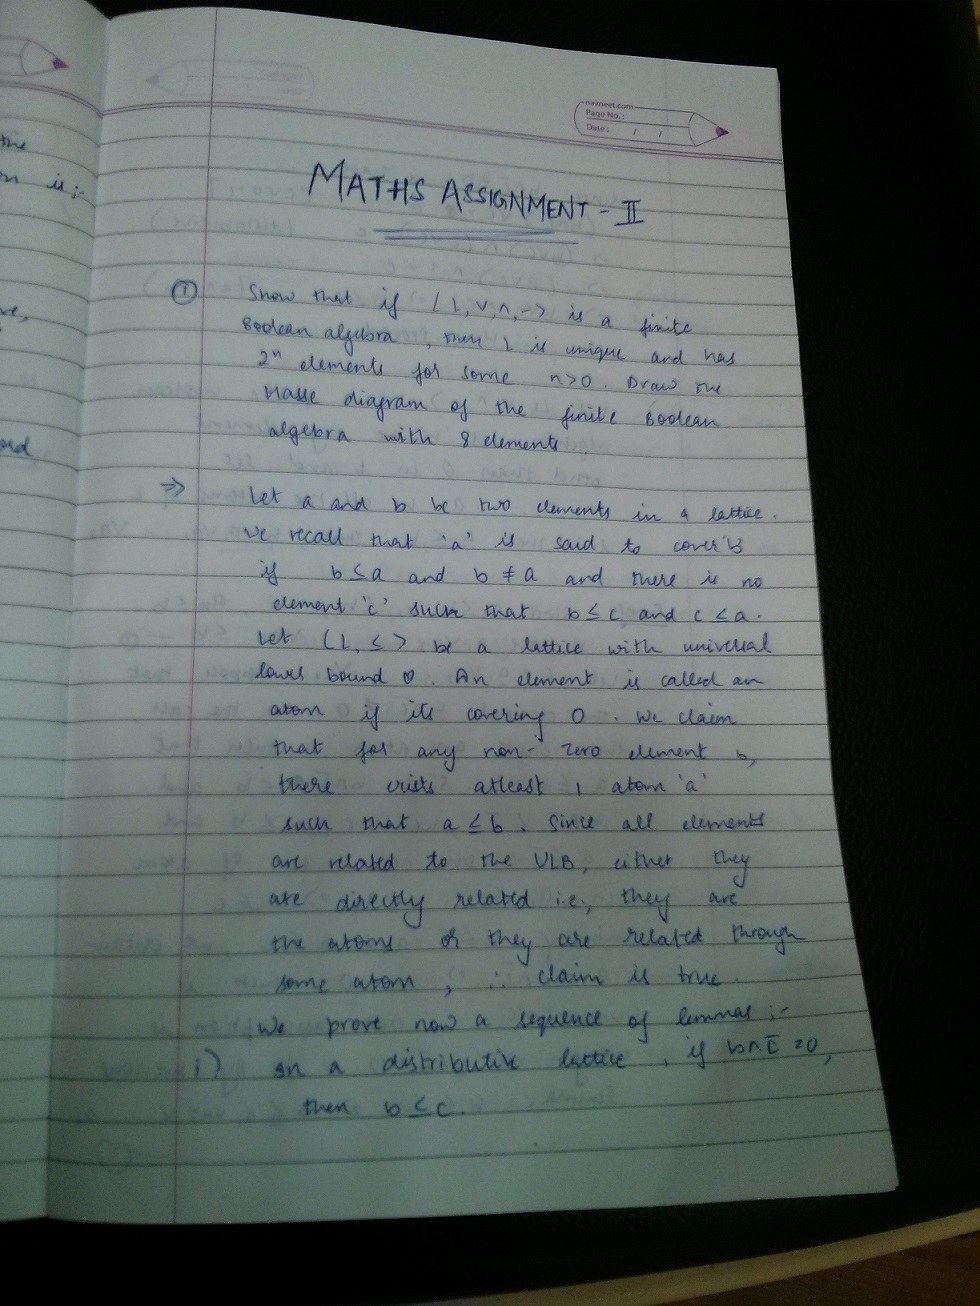 the
on is :-
ve,
ord
navneet.com
Page No.:
Date: / /
MATHS ASSIGNMENT - II
① Show that if (L, ∨, ∧, -> is a finite
Boolean algebra, then L is unique and has
2ⁿ elements for some n>0. Draw the
Hasse diagram of the finite Boolean
algebra with 8 elements.
⇒ Let a and b be two elements in a lattice.
We recall that 'a' is said to cover 'b'
if b ≤ a and b ≠ a and there is no
element 'c' such that b ≤ c and c ≤ a.
Let (L, ≤ > be a lattice with universal
lower bound 0. An element is called an
atom if its covering 0. We claim
that for any non-zero element b,
there exists atleast 1 atom 'a'
such that a ≤ b. Since all elements
are related to the ULB, either they
are directly related i.e., they are
the atoms or they are related through
some atom, ∴ claim is true.
We prove now a sequence of lemmas :-
i) In a distributive lattice, if b∧c̅ = 0,
then b ≤ c.